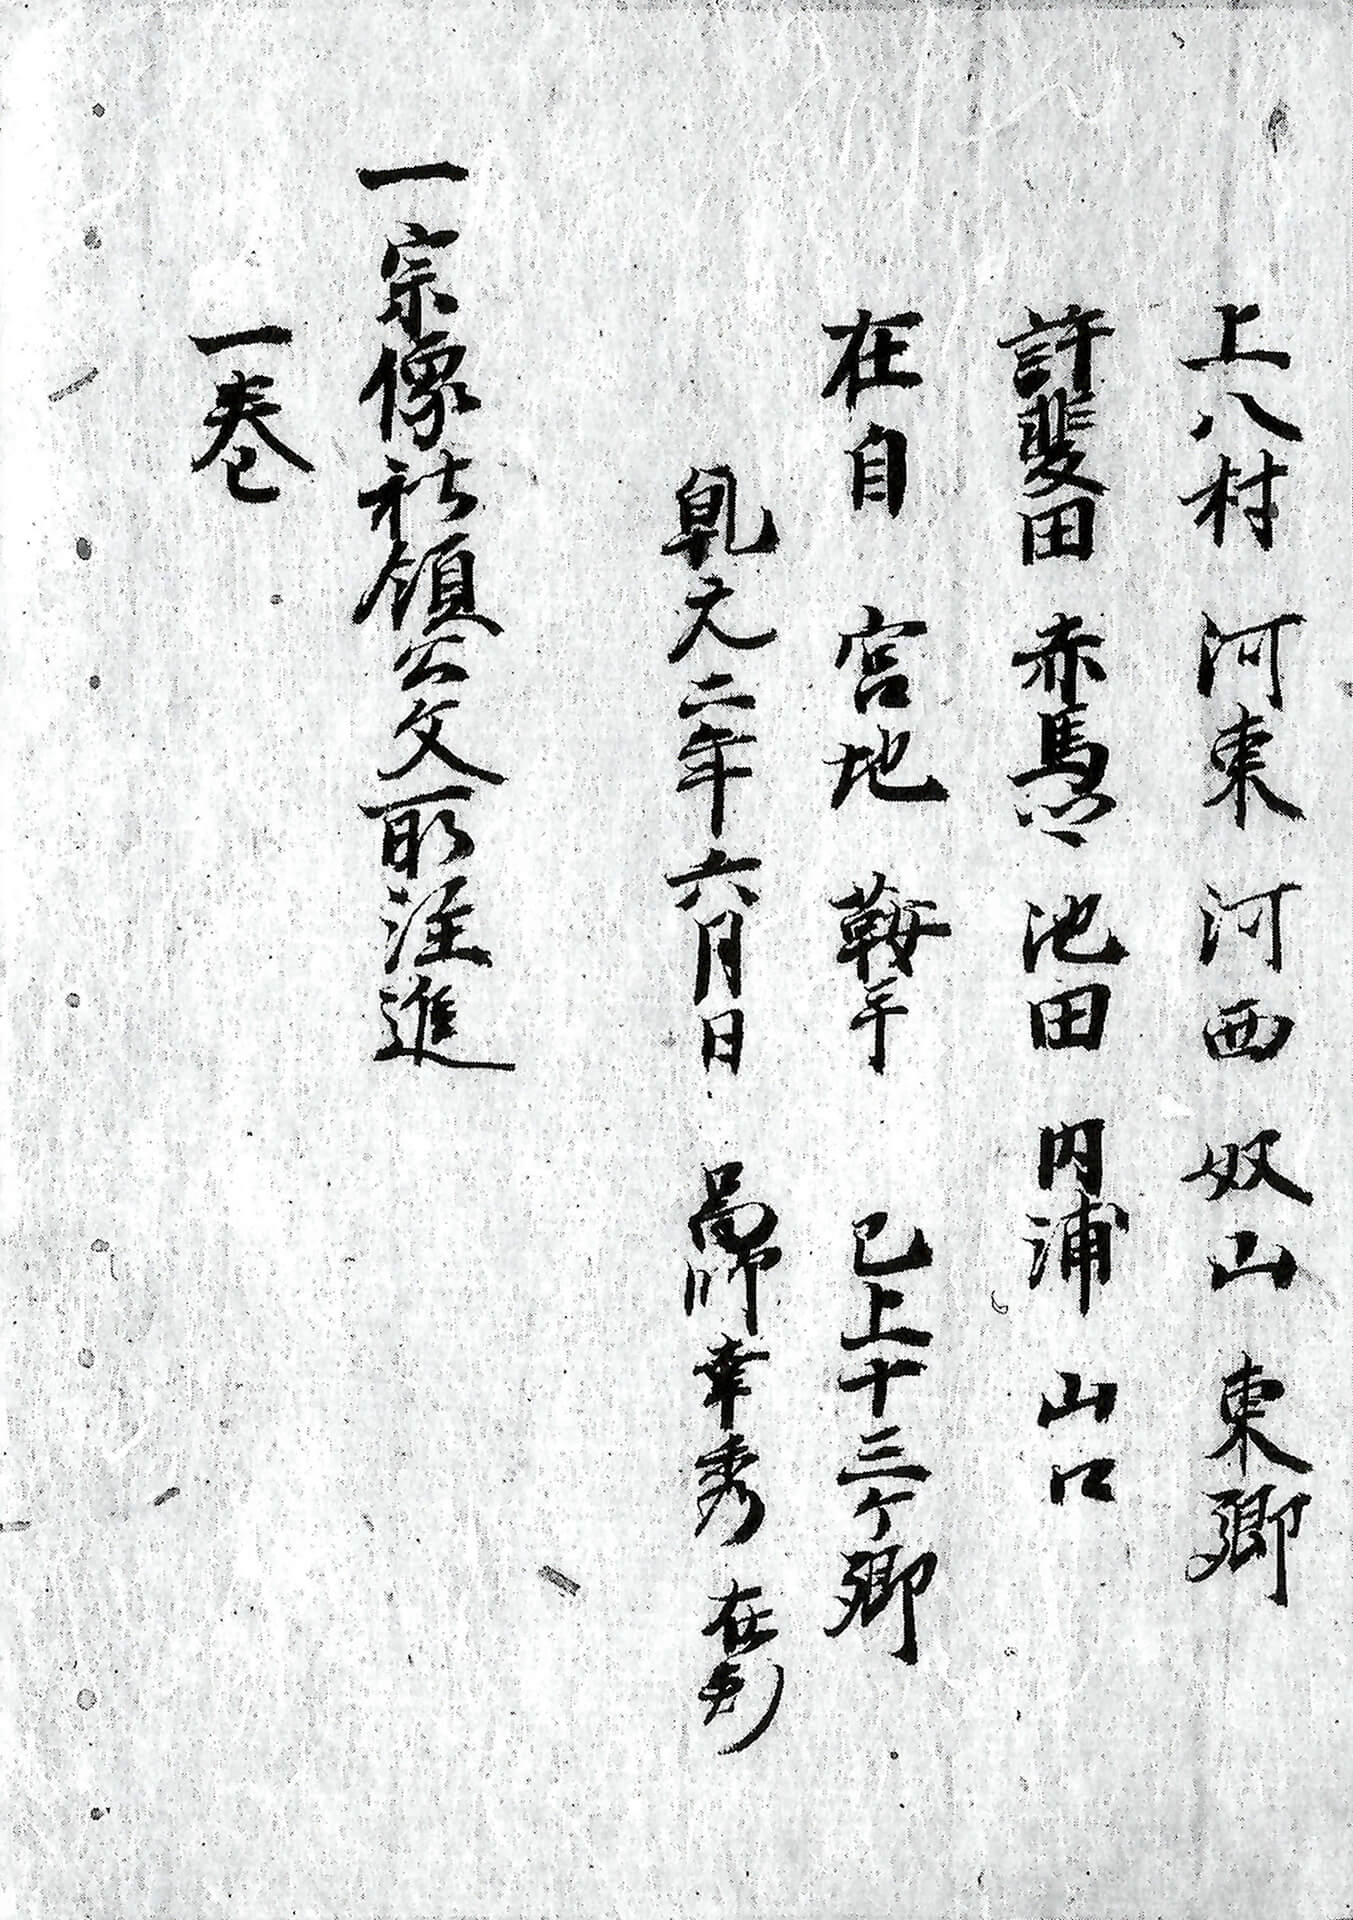 上八村 河東 河西 奴山 東郷
許斐田 赤馬 池田 内浦 山口
在自 宮地 鞍手 已上十三ケ郷
乹元二年六月日 幸秀 在判
一宗像社領公文所注進
一巻